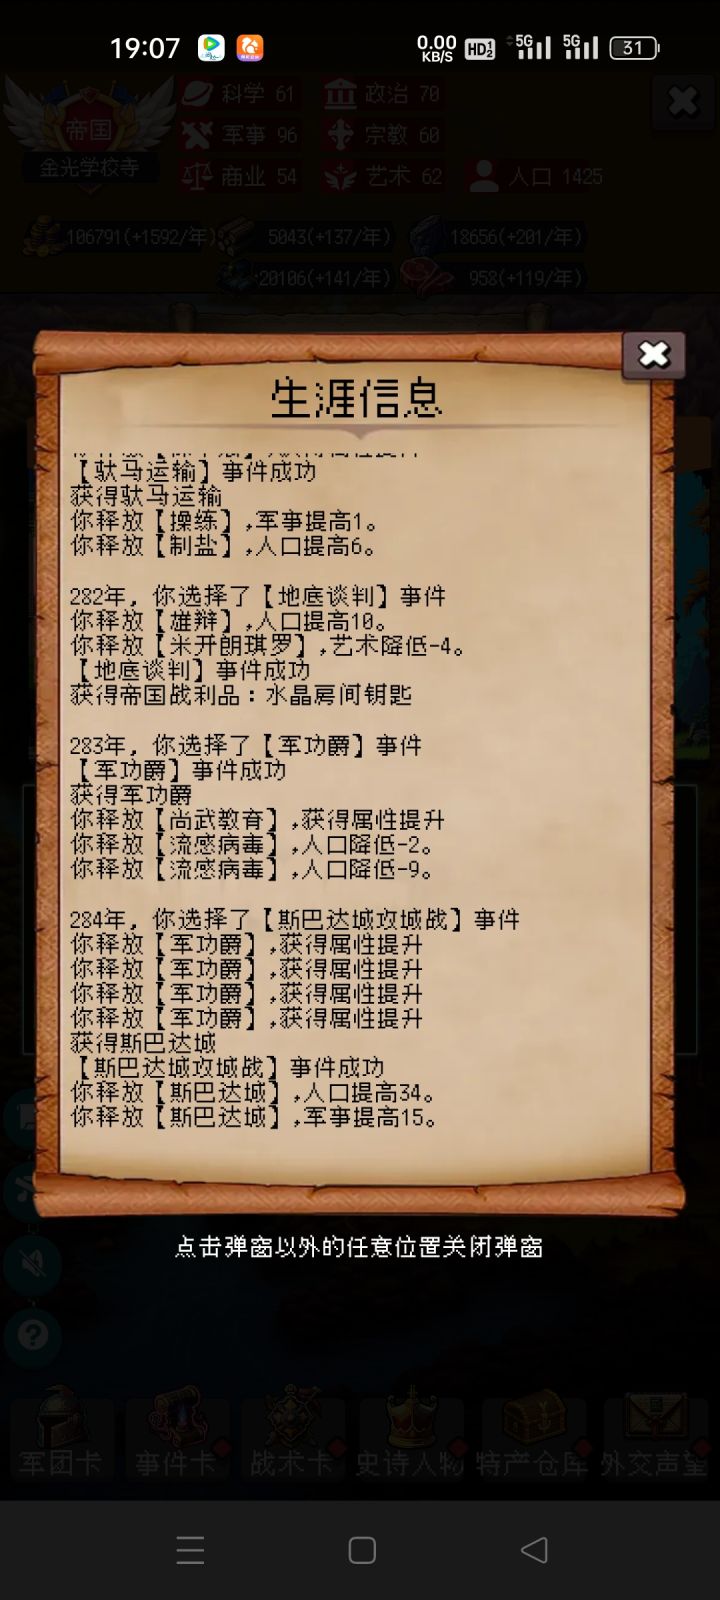 19:07
0.00
KB/S
HD 1 2
5G
5G
31
帝国
金光学校寺
科学 61
政治 70
军事 96
宗教 60
商业 54
艺术 62
人口 1425
106791(+1592/年)
5043(+137/年)
18656(+201/年)
20106(+141/年)
958(+119/年)
生涯信息
【驮马运输】事件成功
获得驮马运输
你释放【操练】,军事提高1。
你释放【制盐】,人口提高6。
282年, 你选择了【地底谈判】事件
你释放【雄辩】,人口提高10。
你释放【米开朗琪罗】,艺术降低-4。
【地底谈判】事件成功
获得帝国战利品：水晶房间钥匙
283年, 你选择了【军功爵】事件
【军功爵】事件成功
获得军功爵
你释放【尚武教育】,获得属性提升
你释放【流感病毒】,人口降低-2。
你释放【流感病毒】,人口降低-9。
284年, 你选择了【斯巴达城攻城战】事件
你释放【军功爵】,获得属性提升
你释放【军功爵】,获得属性提升
你释放【军功爵】,获得属性提升
你释放【军功爵】,获得属性提升
获得斯巴达城
【斯巴达城攻城战】事件成功
你释放【斯巴达城】,人口提高34。
你释放【斯巴达城】,军事提高15。
点击弹窗以外的任意位置关闭弹窗
?
军团卡
事件卡
战术卡
史诗人物
特产仓库
外交声望